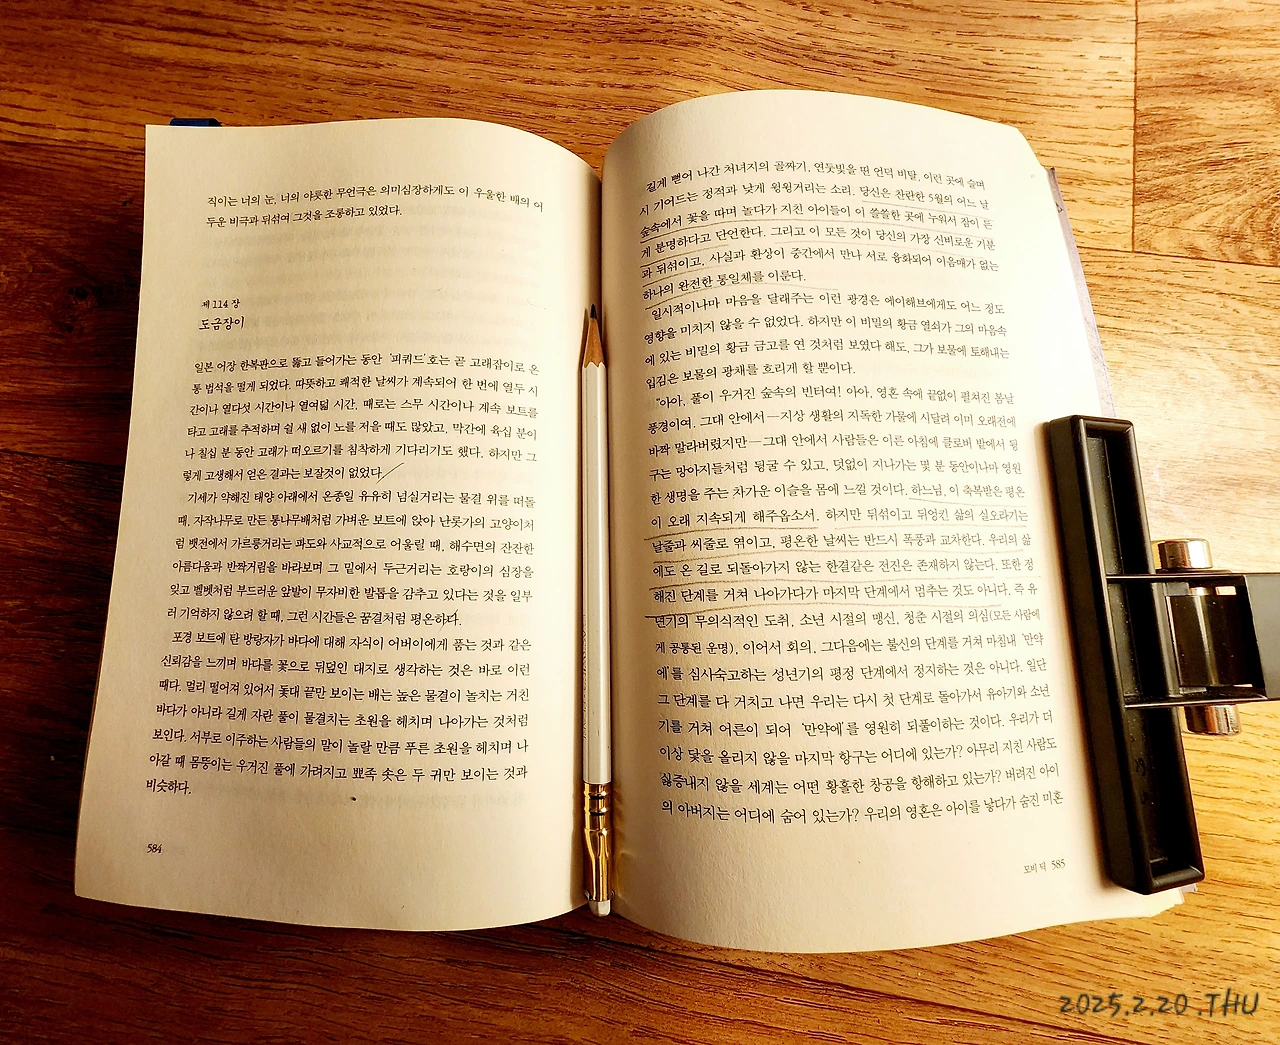 직이는 너의 눈, 너의 야릇한 무언극은 의미심장하게도 이 우울한 배의 어
두운 비극과 뒤섞여 그것을 조롱하고 있었다.
제 114 장
도금장이
일본 어장 한복판으로 뚫고 들어가는 동안 '피쿼드'호는 곧 고래잡이로 온
통 법석을 떨게 되었다. 따뜻하고 쾌적한 날씨가 계속되어 한 번에 열두 시
간이나 열다섯 시간이나 열여덟 시간, 때로는 스무 시간이나 계속 보트를
타고 고래를 추적하며 쉴 새 없이 노를 저을 때도 많았고, 막간에 육십 분이
나 칠십 분 동안 고래가 떠오르기를 침착하게 기다리기도 했다. 하지만 그
렇게 고생해서 얻은 결과는 보잘것이 없었다.
기세가 약해진 태양 아래에서 온종일 유유히 넘실거리는 물결 위를 떠돌
때, 자작나무로 만든 통나무배처럼 가벼운 보트에 앉아 난롯가의 고양이처
럼 뱃전에서 가르릉거리는 파도와 사교적으로 어울릴 때, 해수면의 잔잔한
아름다움과 반짝거림을 바라보며 그 밑에서 두근거리는 호랑이의 심장을
잊고 벨벳처럼 부드러운 앞발이 무자비한 발톱을 감추고 있다는 것을 일부
러 기억하지 않으려 할 때, 그런 시간들은 꿈결처럼 평온하다.
포경 보트에 탄 방랑자가 바다에 대해 자식이 어버이에게 품는 것과 같은
신뢰감을 느끼며 바다를 꽃으로 뒤덮인 대지로 생각하는 것은 바로 이런
때다. 멀리 떨어져 있어서 돛대 끝만 보이는 배는 높은 물결이 놀치는 거친
바다가 아니라 길게 자란 풀이 물결치는 초원을 헤치며 나아가는 것처럼
보인다. 서부로 이주하는 사람들의 말이 놀랄 만큼 푸른 초원을 헤치며 나
아갈 때 몸뚱이는 우거진 풀에 가려지고 뾰족 솟은 두 귀만 보이는 것과
비슷하다.
584
길게 뻗어 나간 처녀지의 골짜기, 연둣빛을 띤 언덕 비탈, 이런 곳에 슬며
시 기어드는 정적과 낮게 윙윙거리는 소리. 당신은 찬란한 5월의 어느 날
숲속에서 꽃을 따며 놀다가 지친 아이들이 이 쓸쓸한 곳에 누워서 잠이 든
게 분명하다고 단언한다. 그리고 이 모든 것이 당신의 가장 신비로운 기분
과 뒤섞이고, 사실과 환상이 중간에서 만나 서로 융화되어 이음매가 없는
하나의 완전한 통일체를 이룬다.
일시적이나마 마음을 달래주는 이런 광경은 에이해브에게도 어느 정도
영향을 미치지 않을 수 없었다. 하지만 이 비밀의 황금 열쇠가 그의 마음속
에 있는 비밀의 황금 금고를 연 것처럼 보였다 해도, 그가 보물에 토해내는
입김은 보물의 광채를 흐리게 할 뿐이다.
"아아, 풀이 우거진 숲속의 빈터여! 아아, 영혼 속에 끝없이 펼쳐진 봄날
풍경이여. 그대 안에서—지상 생활의 지독한 가뭄에 시달려 이미 오래전에
바짝 말라버렸지만—그대 안에서 사람들은 이른 아침에 클로버 밭에서 뒹
구는 망아지들처럼 뒹굴 수 있고, 덧없이 지나가는 몇 분 동안이나마 영원
한 생명을 주는 차가운 이슬을 몸에 느낄 것이다. 하느님, 이 축복받은 평온
이 오래 지속되게 해주옵소서. 하지만 뒤섞이고 뒤엉킨 삶의 실오라기는
날줄과 씨줄로 엮이고, 평온한 날씨는 반드시 폭풍과 교차한다. 우리의 삶
에도 온 길로 되돌아가지 않는 한결같은 전진은 존재하지 않는다. 또한 정
해진 단계를 거쳐 나아가다가 마지막 단계에서 멈추는 것도 아니다. 즉 유
년기의 무의식적인 도취, 소년 시절의 맹신, 청춘 시절의 의심(모든 사람에
게 공통된 운명), 이어서 회의, 그다음에는 불신의 단계를 거쳐 마침내 '만약
에'를 심사숙고하는 성년기의 평정 단계에서 정지하는 것은 아니다. 일단
그 단계를 다 거치고 나면 우리는 다시 첫 단계로 돌아가서 유아기와 소년
기를 거쳐 어른이 되어 '만약에'를 영원히 되풀이하는 것이다. 우리가 더
이상 닻을 올리지 않을 마지막 항구는 어디에 있는가? 아무리 지친 사람도
싫증내지 않을 세계는 어떤 황홀한 창공을 항해하고 있는가? 버려진 아이
의 아버지는 어디에 숨어 있는가? 우리의 영혼은 아이를 낳다가 숨진 미혼
모비 딕 585
2025.2.20.THU